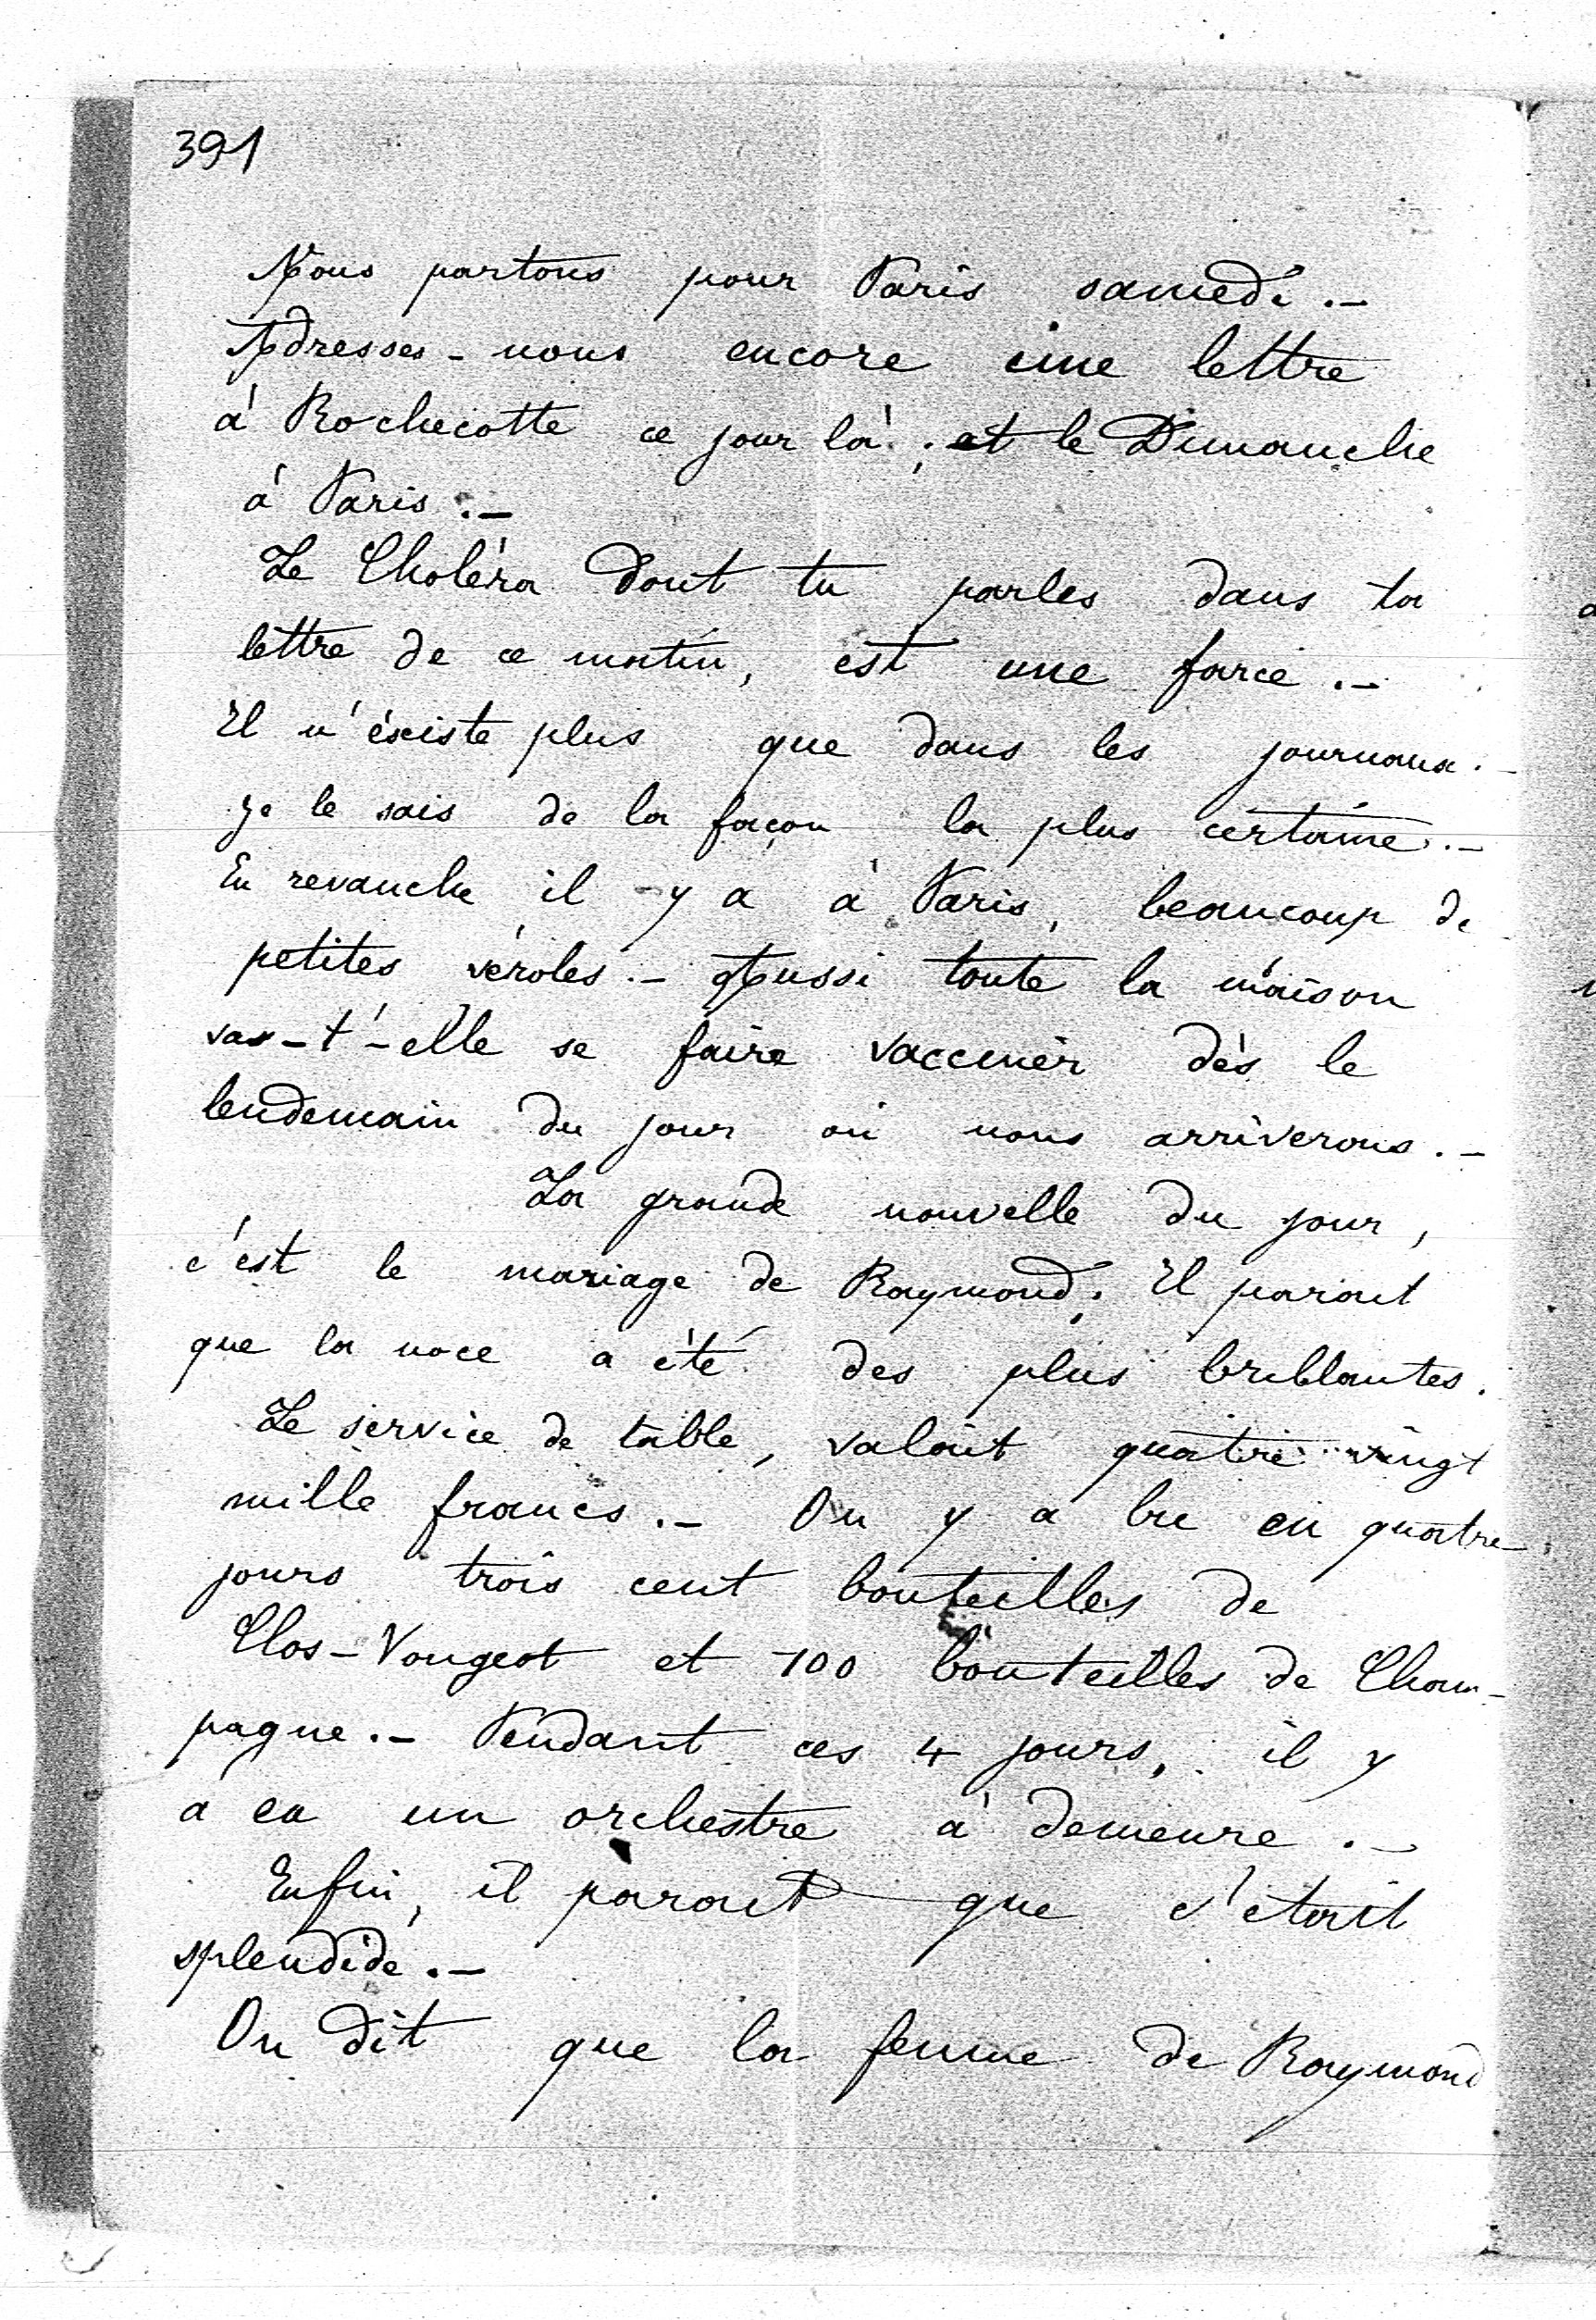 391
Nous partons pour Paris samedi. –
Adresses-nous encore une lettre
à Rochecotte ce jour là ; et le Dimanche
à Paris. –
Le Choléra dont tu parles dans ta
lettre de ce matin, est une farce. –
Il n'éxiste plus que dans les journaux. –
Je le sais de la façon la plus certaine. –
En revanche il y a à Paris, beaucoup de
petites véroles. – Aussi toute la maison
va-t'-elle se faire vacciner dès le
lendemain du jour où nous arriverons. –
La grande nouvelle du jour,
c'est le mariage de Raymond. Il parait
que la noce a été des plus brillantes.
Le service de table, valait quatre vingt
mille francs. – On y a bu en quatre
jours trois cent bouteilles de
Clos-Vougeot et 100 bouteilles de Cham-
pagne. – Pendant ces 4 jours, il y
a eu un orchestre à demeure. –
Enfin, il parait que c'était
splendide. –
On dit que la femme de Raymond